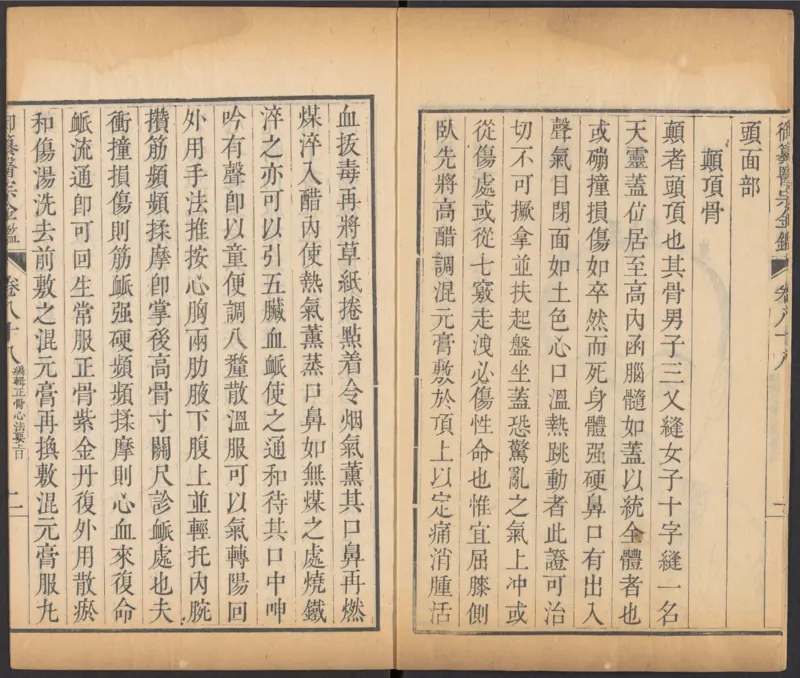 御纂醫宗金鑑 卷八十八
頭面部
巔頂骨
巔者頭頂也其骨男子三乂縫女子十字縫一名
天靈蓋位居至高內函腦髓如蓋以統全體者也
或磞撞損傷如卒然而死身體强硬鼻口有出入
聲氣目閉面如土色心口溫熱跳動者此證可治
切不可撅拿並扶起盤坐蓋恐驚亂之氣上冲或
從傷處或從七竅走洩必傷性命也惟宜屈膝側
臥先將高醋調混元膏敷於頂上以定痛消腫活
血拔毒再將草紙捲點着令烟氣薰其口鼻再燃
煤淬入醋內使熱氣薰蒸口鼻如無煤之處燒鐵
淬之亦可以引五臟血脈使之通和待其口中呻
吟有聲卽以童便調八釐散溫服可以氣轉陽回
外用手法推按心胸兩肋腋下腹上並輕托內腕
攢筋頻頻揉摩卽掌後高骨寸關尺診脈處也夫
衝撞損傷則筋脈强硬頻頻揉摩則心血來復命
脈流通卽可回生常服正骨紫金丹復外用散瘀
和傷湯洗去前敷之混元膏再換敷混元膏服九
御纂醫宗金鑑 卷八十八 編輯正骨心法要旨 二